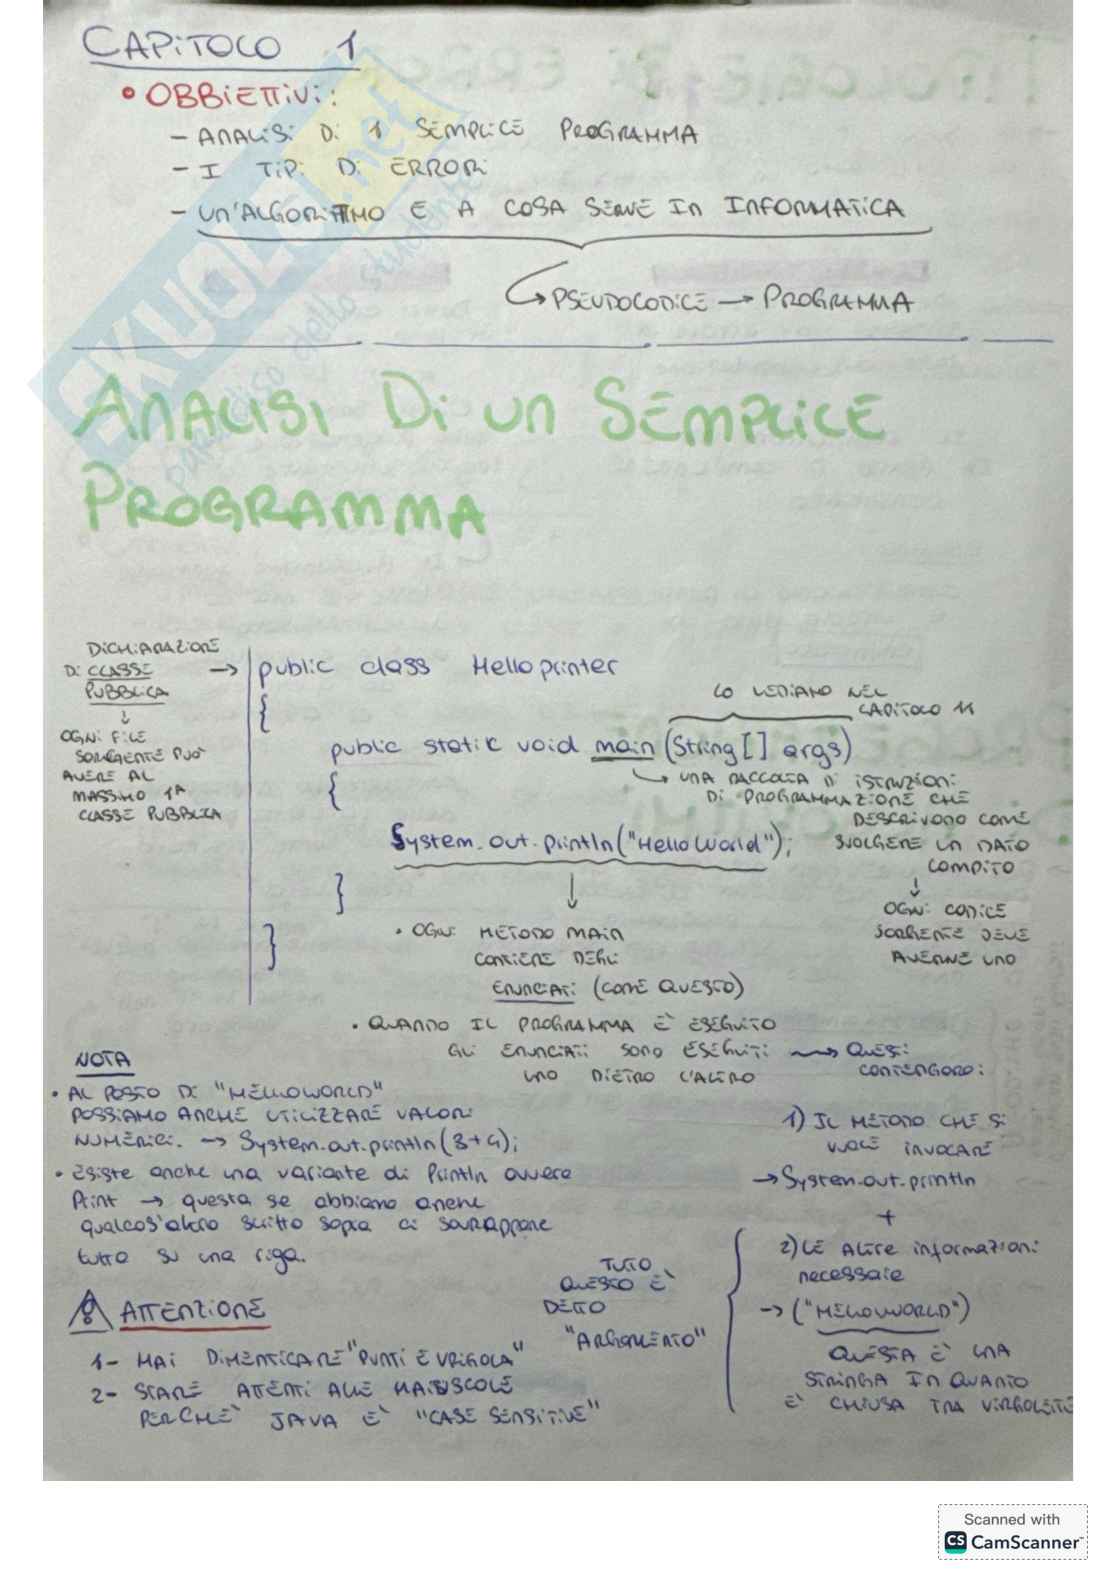 CAPITOLO 1
• OBBIETTIVI:
- ANALISI DI 1 SEMPLICE PROGRAMMA
- I TIPI DI ERRORI
- UN'ALGORITTMO E A COSA SERVE IN INFORMATICA
PSEUDOCODICE → PROGRAMMA
ANALISI DI UN SEMPLICE
PROGRAMMA
DICHIARAZIONE
DI CLASSE →
PUBBLICA
↓
OGNI FILE
SORGENTE PUO'
AVERE AL
MASSIMO 1ª
CLASSE PUBBLICA
public class Hello printer
{
LO VEDIAMO NEL
CAPITOLO 11
public static void main (String [] args)
{
→ UNA RACCOLTA DI ISTRUZIONI
DI PROGRAMMAZIONE CHE
DESCRIVONO COME
SVOLGERE UN DATO
COMPITO
↓
OGNI CODICE
SORGENTE DEVE
AVERNE UNO
System.out.println("Hello World");
}
}
↓
• OGNI METODO MAIN
CONTIENE DEGLI
ENUNCIATI (COME QUESTO)
• QUANDO IL PROGRAMMA E' ESEGUITO
GLI ENUNCIATI SONO ESEGUITI → QUESTI
UNO DIETRO L'ALTRO
CONTENGONO:
1) IL METODO CHE SI
VUOLE INVOCARE
→ System.out.println
+
2) LE ALTRE informazioni
necessarie
→ ("HELLOWORLD")
QUESTA E' UNA
STRINGA IN QUANTO
E' CHIUSA TRA VIRGOLETTE
TUTTO
QUESTO E'
DETTO
"ARGOMENTO"
NOTA
• AL POSTO DI "HELLOWORLD"
POSSIAMO ANCHE UTILIZZARE VALORI
NUMERICI. → System.out.println(3+4);
• Esiste anche una variante di Println ovvero
Print → questa se abbiamo anche
qualcos'altro scritto sopra ci sovrappone
tutto su una riga.
! ATTENZIONE
1- MAI DIMENTICARE "PUNTI E VRIGOLA"
2- STARE ATTENTI ALLE MAIUSCOLE
PERCHE' JAVA E' "CASE SENSITIVE"
SKUOLA.net
paradiso dello studente
Scanned with
CS CamScanner